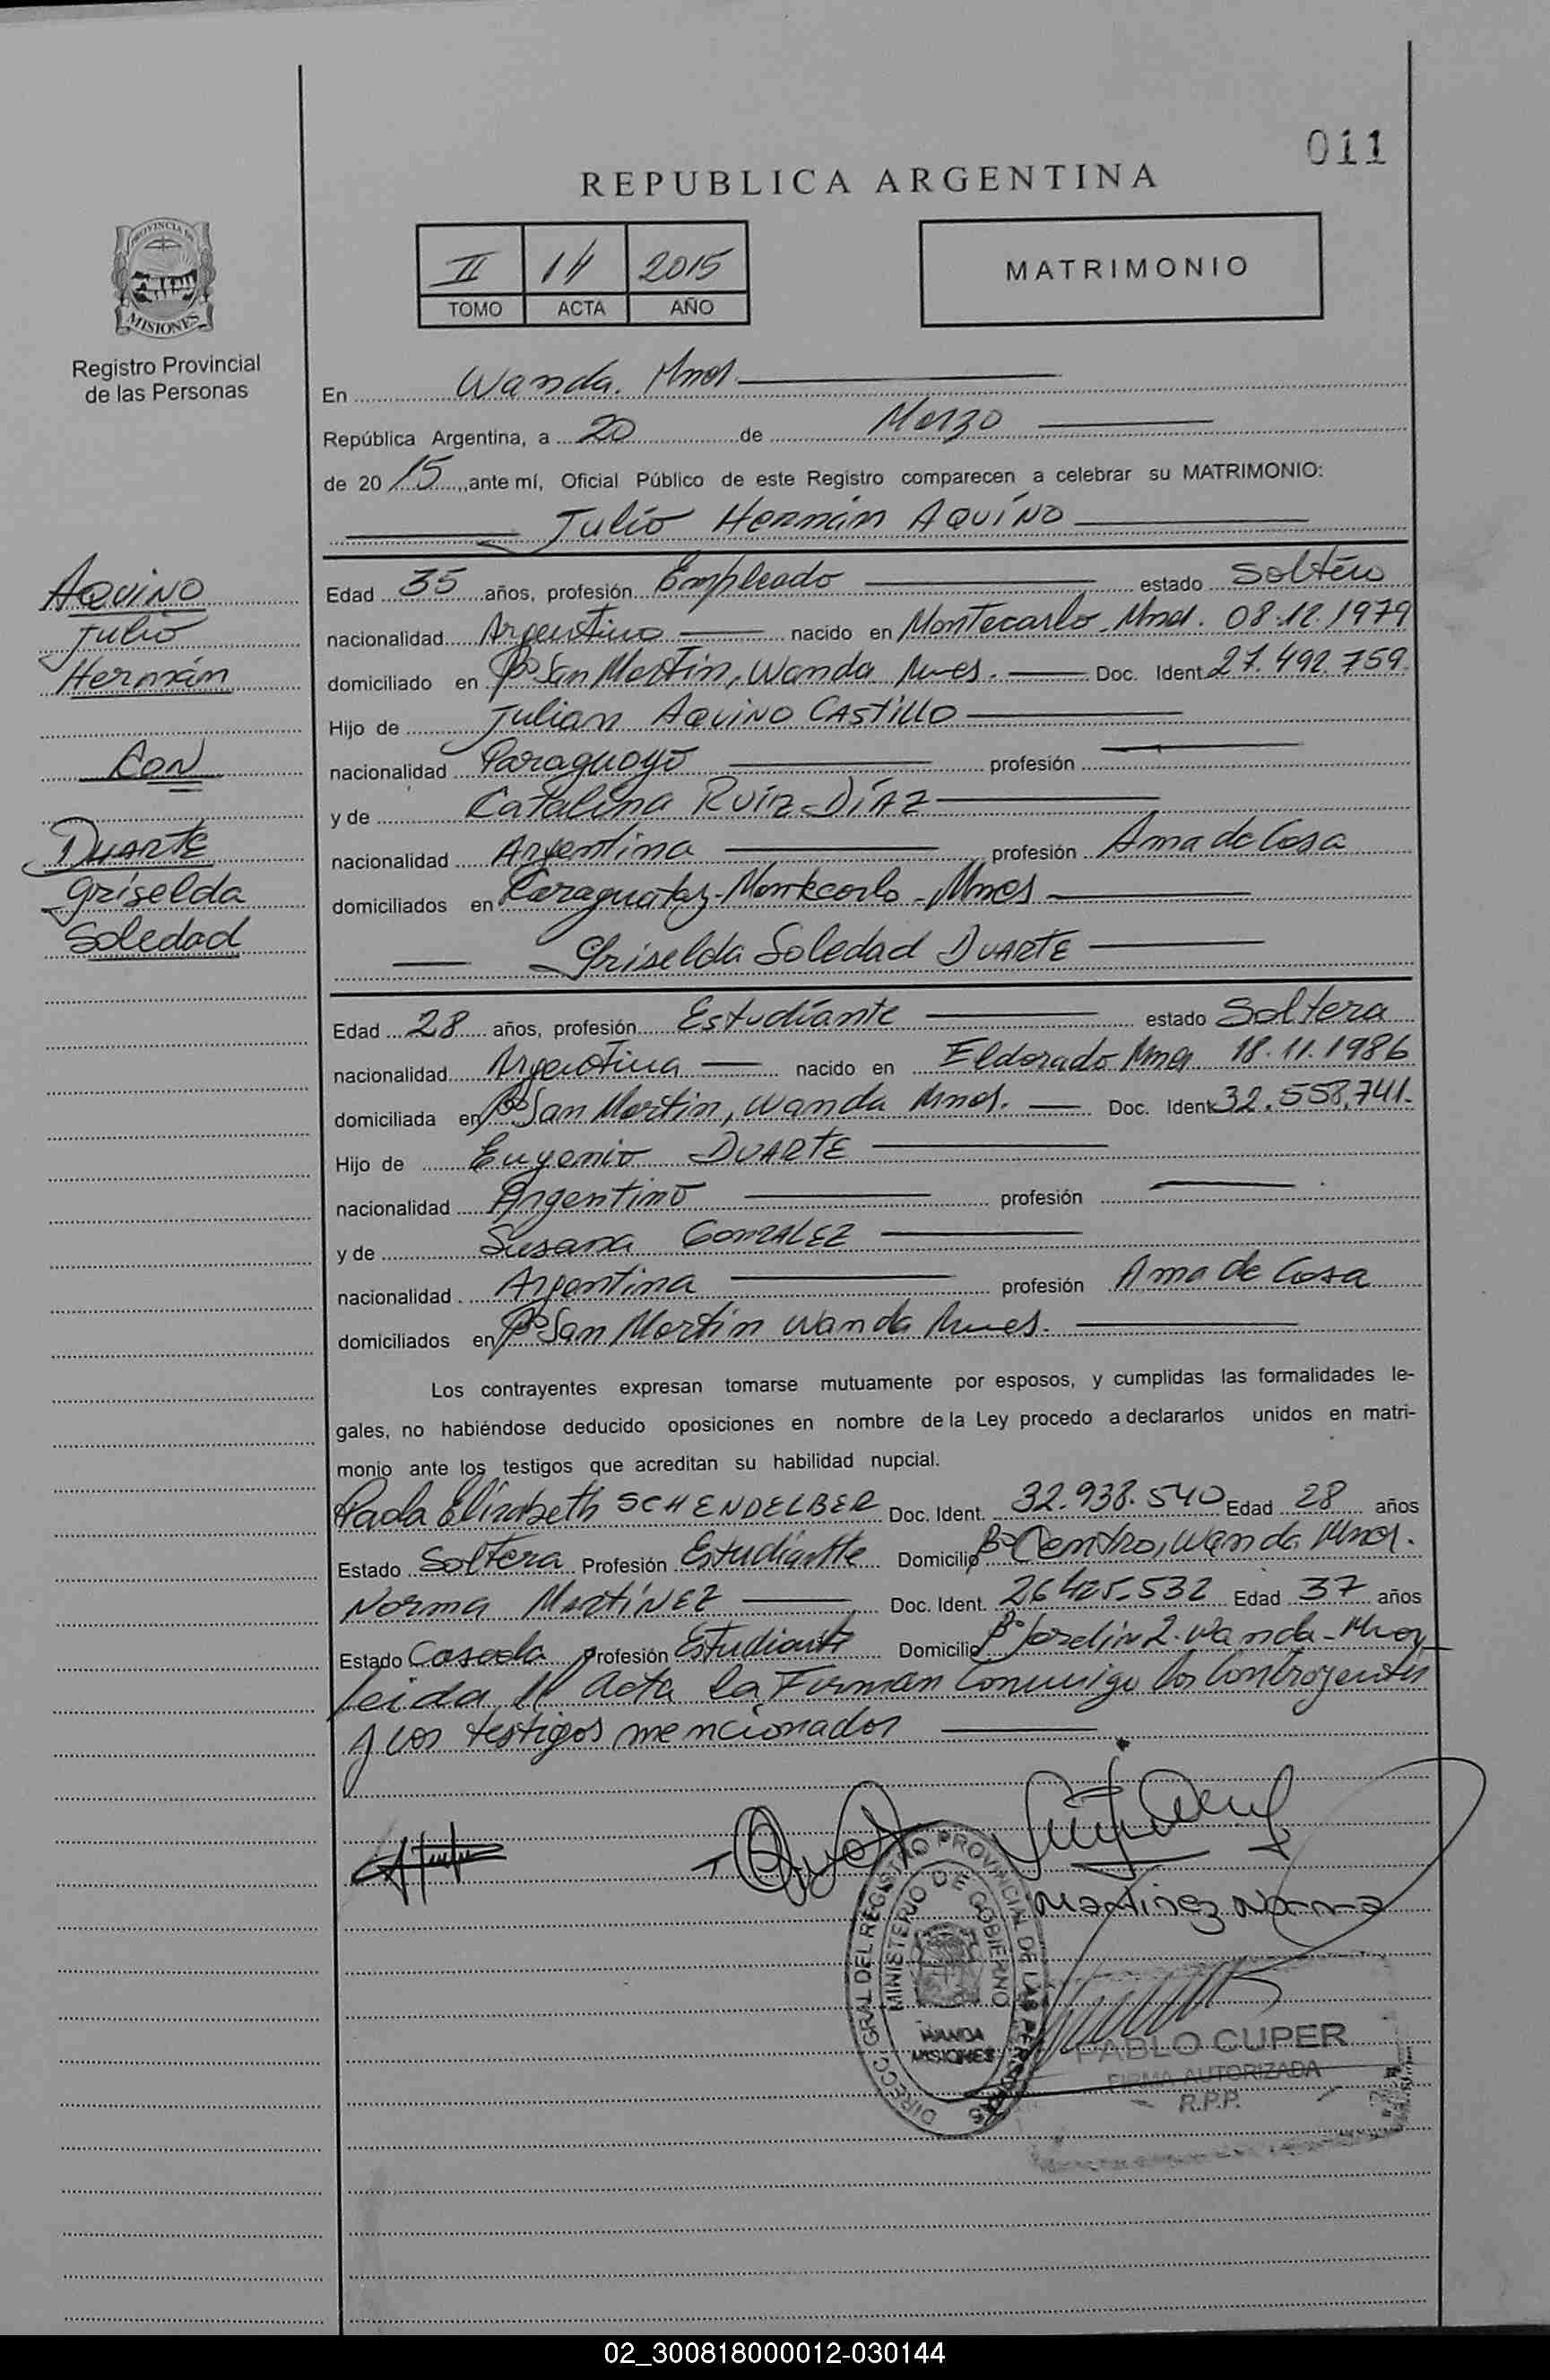 011
REPUBLICA ARGENTINA
II 14 2015
TOMO ACTA AÑO
MATRIMONIO
PROVINCIA DE
MISIONES
Registro Provincial
de las Personas
En Wanda. Mnes
República Argentina, a 20 de Marzo
de 2015, ante mí, Oficial Público de este Registro comparecen a celebrar su MATRIMONIO:
Julio Hernán AQUINO
AQUINO
Julio
Hernán
CON
DUARTE
Griselda
Soledad
Edad 35 años, profesión Empleado estado Soltero
nacionalidad Argentino nacido en Montecarlo, Mnes. 08.12.1979
domiciliado en Bº San Martín, Wanda Mnes. Doc. Ident 27.492.759.
Hijo de Julian AQUINO CASTILLO
nacionalidad Paraguayo profesión
y de Catalina RUIZ DIAZ
nacionalidad Argentina profesión Ama de Casa
domiciliados en Caraguatay-Montecarlo-Mnes
Griselda Soledad DUARTE
Edad 28 años, profesión Estudiante estado Soltera
nacionalidad Argentina nacido en Eldorado Mnes 18.11.1986
domiciliada en Bº San Martin, Wanda Mnes. Doc. Ident 32.558.741.
Hijo de Eugenio DUARTE
nacionalidad Argentino profesión
y de Susana GONZALEZ
nacionalidad Argentina profesión Ama de Casa
domiciliados en Bº San Martin Wanda Mnes.
Los contrayentes expresan tomarse mutuamente por esposos, y cumplidas las formalidades le-
gales, no habiéndose deducido oposiciones en nombre de la Ley procedo a declararlos unidos en matri-
monio ante los testigos que acreditan su habilidad nupcial.
Paola Elizabeth SCHENDELBER Doc. Ident. 32.938.540 Edad 28 años
Estado Soltera Profesión Estudiante Domicilio Bº Centro, Wanda Mnes.
Norma MARTÍNEZ Doc. Ident. 26.425.532 Edad 37 años
Estado Casada Profesión Estudiante Domicilio Bº Jardin 2. Wanda-Mnes
Leida el Acta la Firman Conmigo los Contrayentes
y los testigos mencionados
Martinez Norma
DIRECC. GRAL DEL REGISTRO PROVINCIAL DE LAS PERSONAS
MINISTERIO DE GOBIERNO
WANDA
MISIONES
PABLO CUPER
FIRMA AUTORIZADA
R.P.P.
02_300818000012-030144